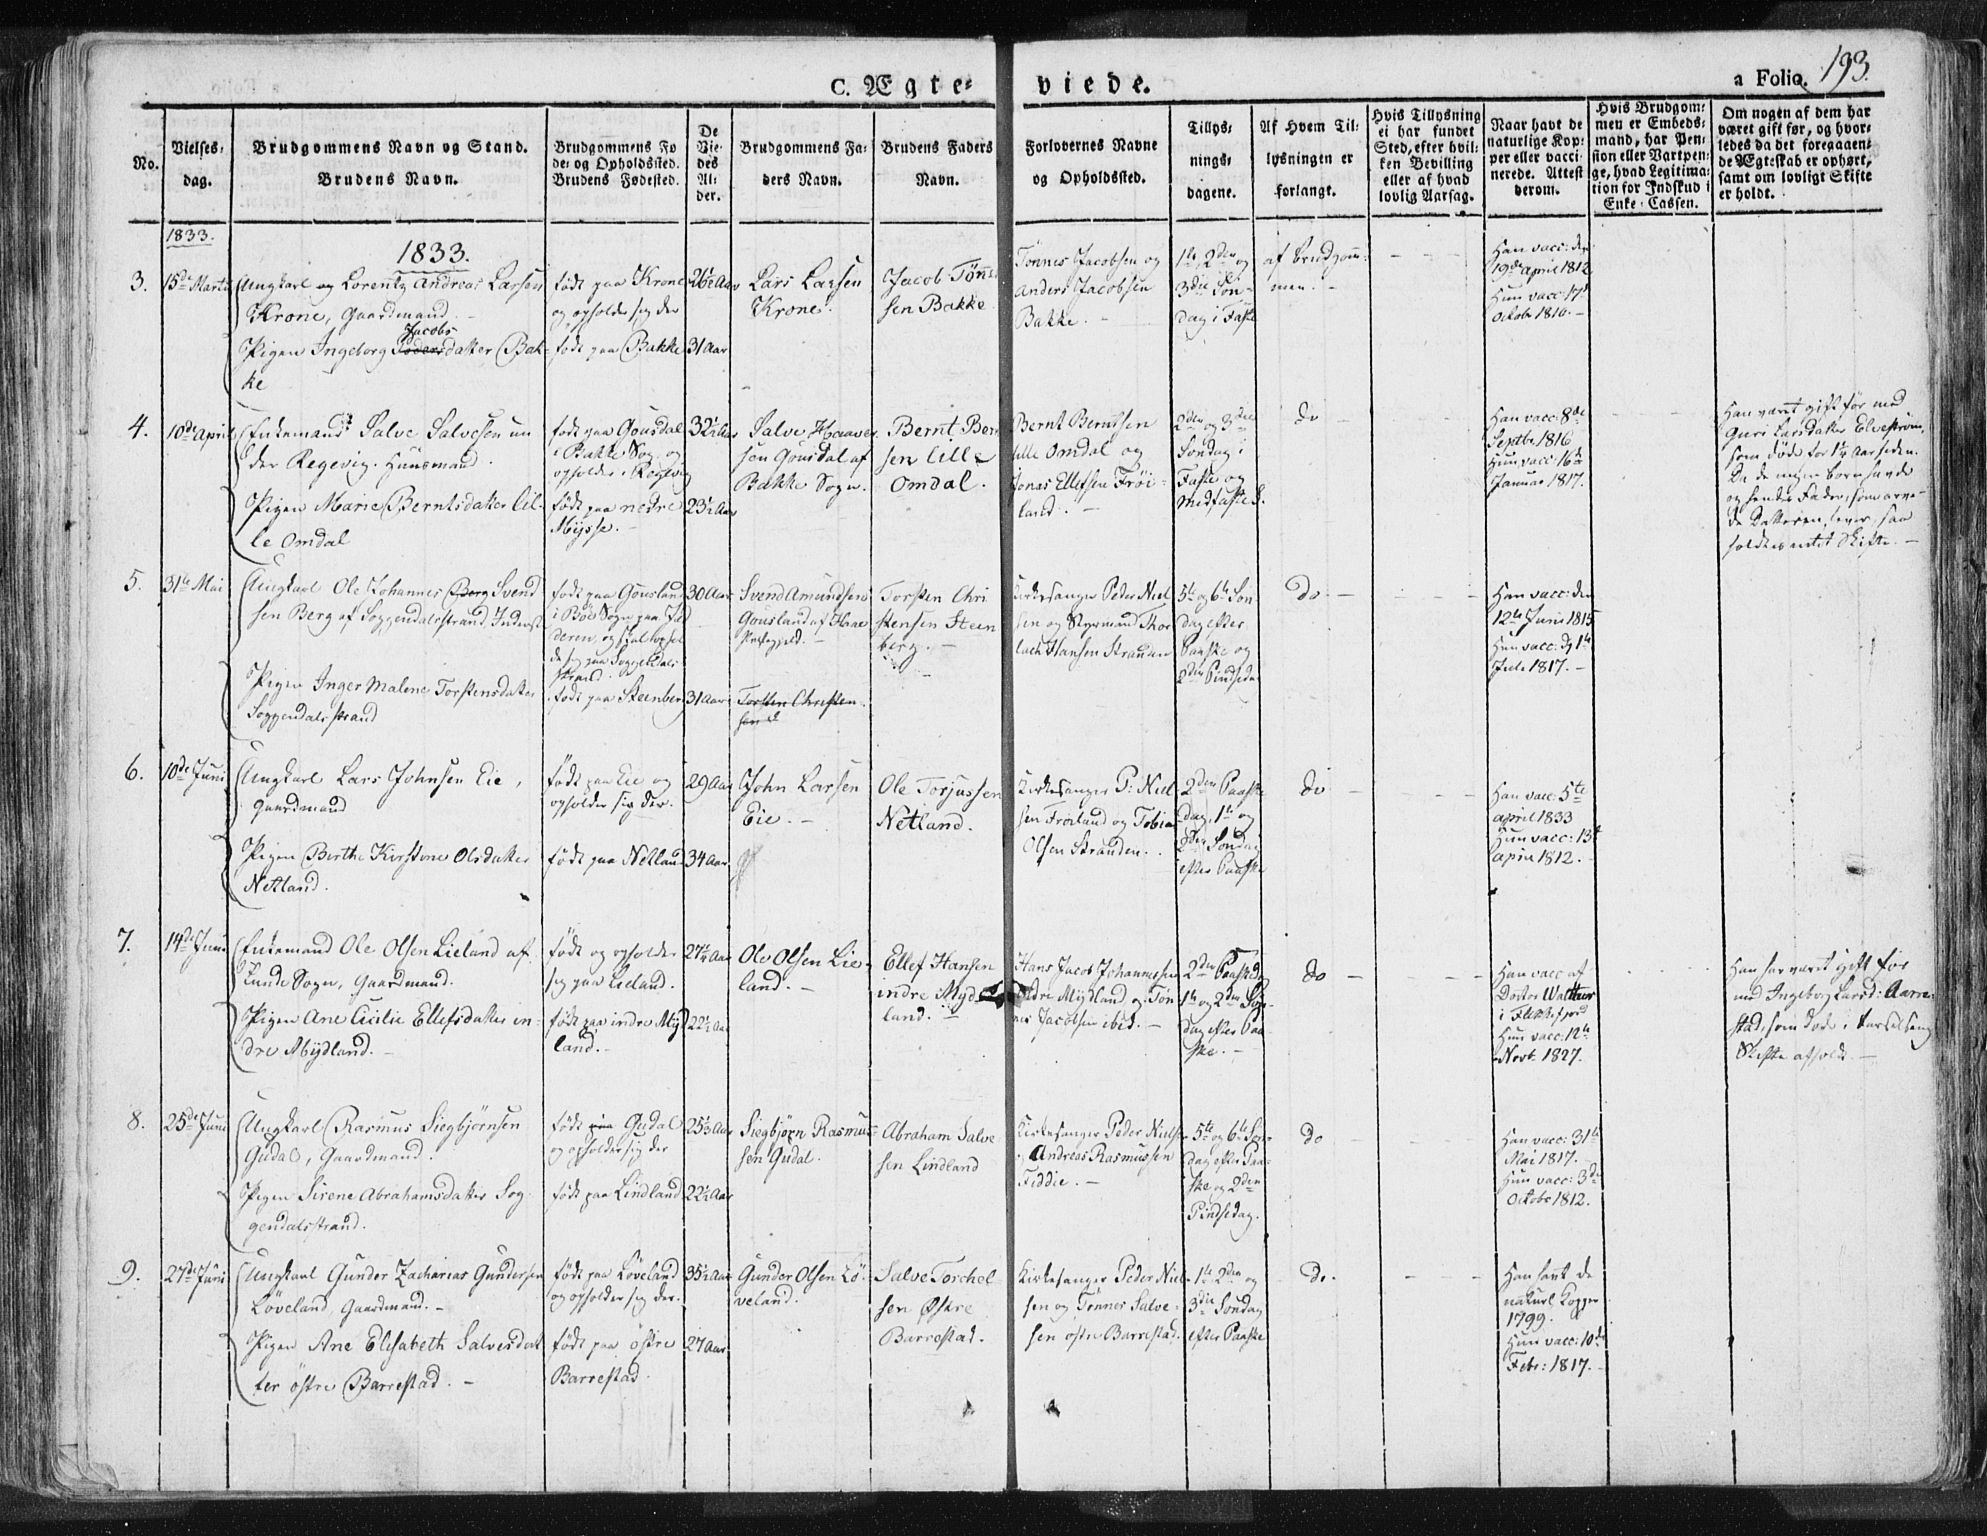 C. Ægte-
viede.
a Folio 193.
No.
Vielses-
dag.
Brudgommens Navn og Stand.
Brudens Navn.
Brudgommens Fø
de- og Opholdssted.
Brudens Fødested.
De
Vie-
des
Al-
der.
Brudgommens Fa-
ders Navn.
Brudens Faders
Navn.
Forlovernes Navne
og Opholdssted.
Tillys-
nings-
dagene.
Af Hvem Til-
lysningen er
forlangt.
Hvis Tillysning
ei har fundet
Sted, efter hvil-
ken Bevilling
eller af hvad
lovlig Aarsag.
Naar havt de
naturlige Kop-
per eller vacci-
nerede. Attest
derom.
Hvis Brudgom-
men er Embeds-
mand, har Pen-
sion eller Vartpen-
ge, hvad Legitima-
tion for Indskud i
Enke-Cassen.
Om nogen af dem har
været gift før, og hvor-
ledes da det foregaaen-
de Ægteskab er ophørt,
samt om lovligt Skifte
er holdt.
1833.
1833.
3.
15de Marts
Ungkarl og Lorentz Andreas Larsen
Krone, Gaardmand.
Jacobs
Pigen Ingeborg datter Bak-
ke
født paa Krone
og opholder sig der
født paa Bakke
26½ Aar
31 Aar
Lars Larsen
Krone.
Jacob Tønne-
sen Bakke
Tønnes Jacobsen og
Anders Jacobsen
Bakke.
1ste, 2den og
3die Søn-
dag i Faste
af Brudgom-
men.
Han vacc: den
19de April 1812
Hun vacc: 17d
Octobr 1816.
4.
10de April
Enkemand Salve Salvesen un
der Regevig. Huusmand.
Pigen Marie Berntsdatter lil-
le Omdal
født paa Gousdal
i Bakke Sogn og
opholder i Regevig
født paa nedre
Mysse.
32½ Aar
23½ Aar
Salve Haaver
sen Gousdal af
Bakke Sogn.
Bernt Bern
sen lille
Omdal.
Bernt Berntsen
lille Omdal og
Jonas Ellefsen Frøi-
land.
2den og 3die
Søndag i
Faste og
Midfaste S.
do
Han vacc: 8de
Septbr 1816
Hun vacc: 16de
Januar 1817.
Han været gift før med
Guri Larsdatter Elvestrøm,
som døde for 1½ Aar siden.
Da de ingen børn havde
og hendes Fader, som arve-
de Datteren, lever, saa
holdtes intet Skifte.
5.
31te Mai
Ungkarl Ole Johannes Berg Svend
sen Berg af Soggendalsstrand, Inderst
Pigen Inger Malene Torstensdatter
Soggendalsstrand
født paa Gousland
i Bøe Sogn paa Jæ
deren, og skal ophol
de sig paa Soggendals
strand.
født paa Steenberg
30 Aar
31 Aar
Svend Amundsen
Gousland af Haae
Præstegjeld.
Torsten Christen
sen
Torsten Chri
stensen Steen
berg.
Kirkesanger Peder Niel
sen og Styrmand Thor
lach Hansen Stranden
5te og 6te Søn-
dag efter
Paaske og
2den Pindsedag
do
Han vacc: den
12te Juni 1815
Hun vacc: d. 1te
Juli 1817.
6.
10de Juni
Ungkarl Lars Johnsen Eie,
Gaardmand
Pigen Berthe Kirstine Olsdatter
Netland.
født paa Eie og
opholder sig der.
født paa Netland
29 Aar
34 Aar
John Larsen
Eie.
Ole Torjussen
Netland.
Kirkesanger P: Niel-
sen Frøiland og Tobias
Olsen Stranden.
2den Paaske
dag, 1te og
2den Søndag
efter Paaske
do
Han vacc: 5te
april 1833
Hun vacc: 13d
april 1812.
7.
14de Juni
Enkemand Ole Olsen Lieland af
Lunde Sogn, Gaardmand.
Pigen Ane Cicilie Ellefsdatter in-
dre Mydland.
født og opholder
sig paa Lieland.
født paa indre Myd
land.
27¼ Aar
22½ Aar
Ole Olsen Lie-
land.
Ellef Hansen
indre Myd-
land.
Hans Jacob Johannessen
indre Mydland og Tøn
nes Jacobsen ibid.
2den Paaskedag
1te og 2den Søn-
dag efter Paa-
ske.
do
Han vacc af
Doctor Walther
i Flekkefjord
Hun vacc: 12te
Novbr 1827.
Han har været gift før
med Ingeborg Larsd: Aarre-
stad, som døde i Barselseng
Skifte afholdt.
8.
25de Juni
Ungkarl Rasmus Siegbjørnsen
Gudal, Gaardmand.
Pigen Sirene Abrahamsdatter Sog-
gendalsstrand.
født paa Gudal
og opholder sig der
født paa Lindland
25⅓ Aar
22½ Aar
Siegbjørn Rasmus-
sen Gudal.
Abraham Salve
sen Lindland
Kirkesanger Peder Nielsen
Andreas Rasmussen
Fiddie.
5te og 6te Søn-
dag efter Paa-
ske og 2den
Pindsedag.
do
Han vacc: 31te
Mai 1817.
Hun vacc: 3de
Octobr 1812.
9.
27de Juni
Ungkarl Gunder Zacharias Gundersen
Løveland, Gaardmand.
Pigen Ane Elisabeth Salvesdat
ter østre Barrestad.
født paa Løveland
og opholder sig der.
født paa østre
Barrestad.
35½ Aar
27 Aar
Gunder Olsen Lø-
veland.
Salve Torchel-
sen Østre
Barrestad.
Kirkesanger Peder Niel-
sen og Tønnes Salve-
sen østre Barrestad.
1te 2den og
3die Søndag
efter Paaske
do.
Han havt de
naturl. Kopper
1799.
Hun vacc: 10de
Febr: 1817.